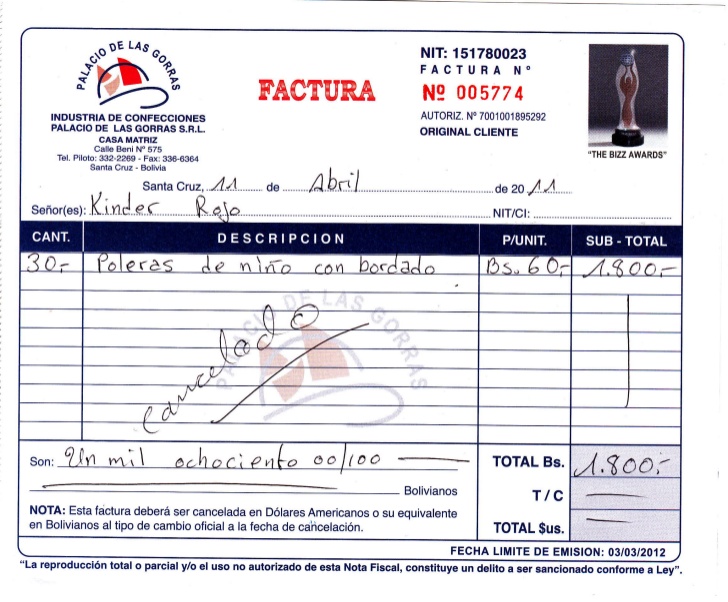 PALACIO DE LAS GORRAS
INDUSTRIA DE CONFECCIONES
PALACIO DE LAS GORRAS S.R.L.
CASA MATRIZ
Calle Beni Nº 575
Tel. Piloto: 332-2269 - Fax: 336-6364
Santa Cruz - Bolivia
FACTURA
NIT: 151780023
FACTURA Nº
Nº 005774
AUTORIZ. Nº 7001001895292
ORIGINAL CLIENTE
"THE BIZZ AWARDS"
Santa Cruz, 11 de Abril de 2011
Señor(es): Kinder Rojo NIT/CI:
CANT. DESCRIPCION P/UNIT. SUB - TOTAL
30,- Poleras de niño con bordado Bs. 60,- 1.800,-
PALACIO DE LAS GORRAS
Cancelado
Son: Un mil ochociento 00/100 TOTAL Bs. 1.800,-
Bolivianos
T / C
NOTA: Esta factura deberá ser cancelada en Dólares Americanos o su equivalente
en Bolivianos al tipo de cambio oficial a la fecha de cancelación.
TOTAL $us.
FECHA LIMITE DE EMISION: 03/03/2012
"La reproducción total o parcial y/o el uso no autorizado de esta Nota Fiscal, constituye un delito a ser sancionado conforme a Ley".